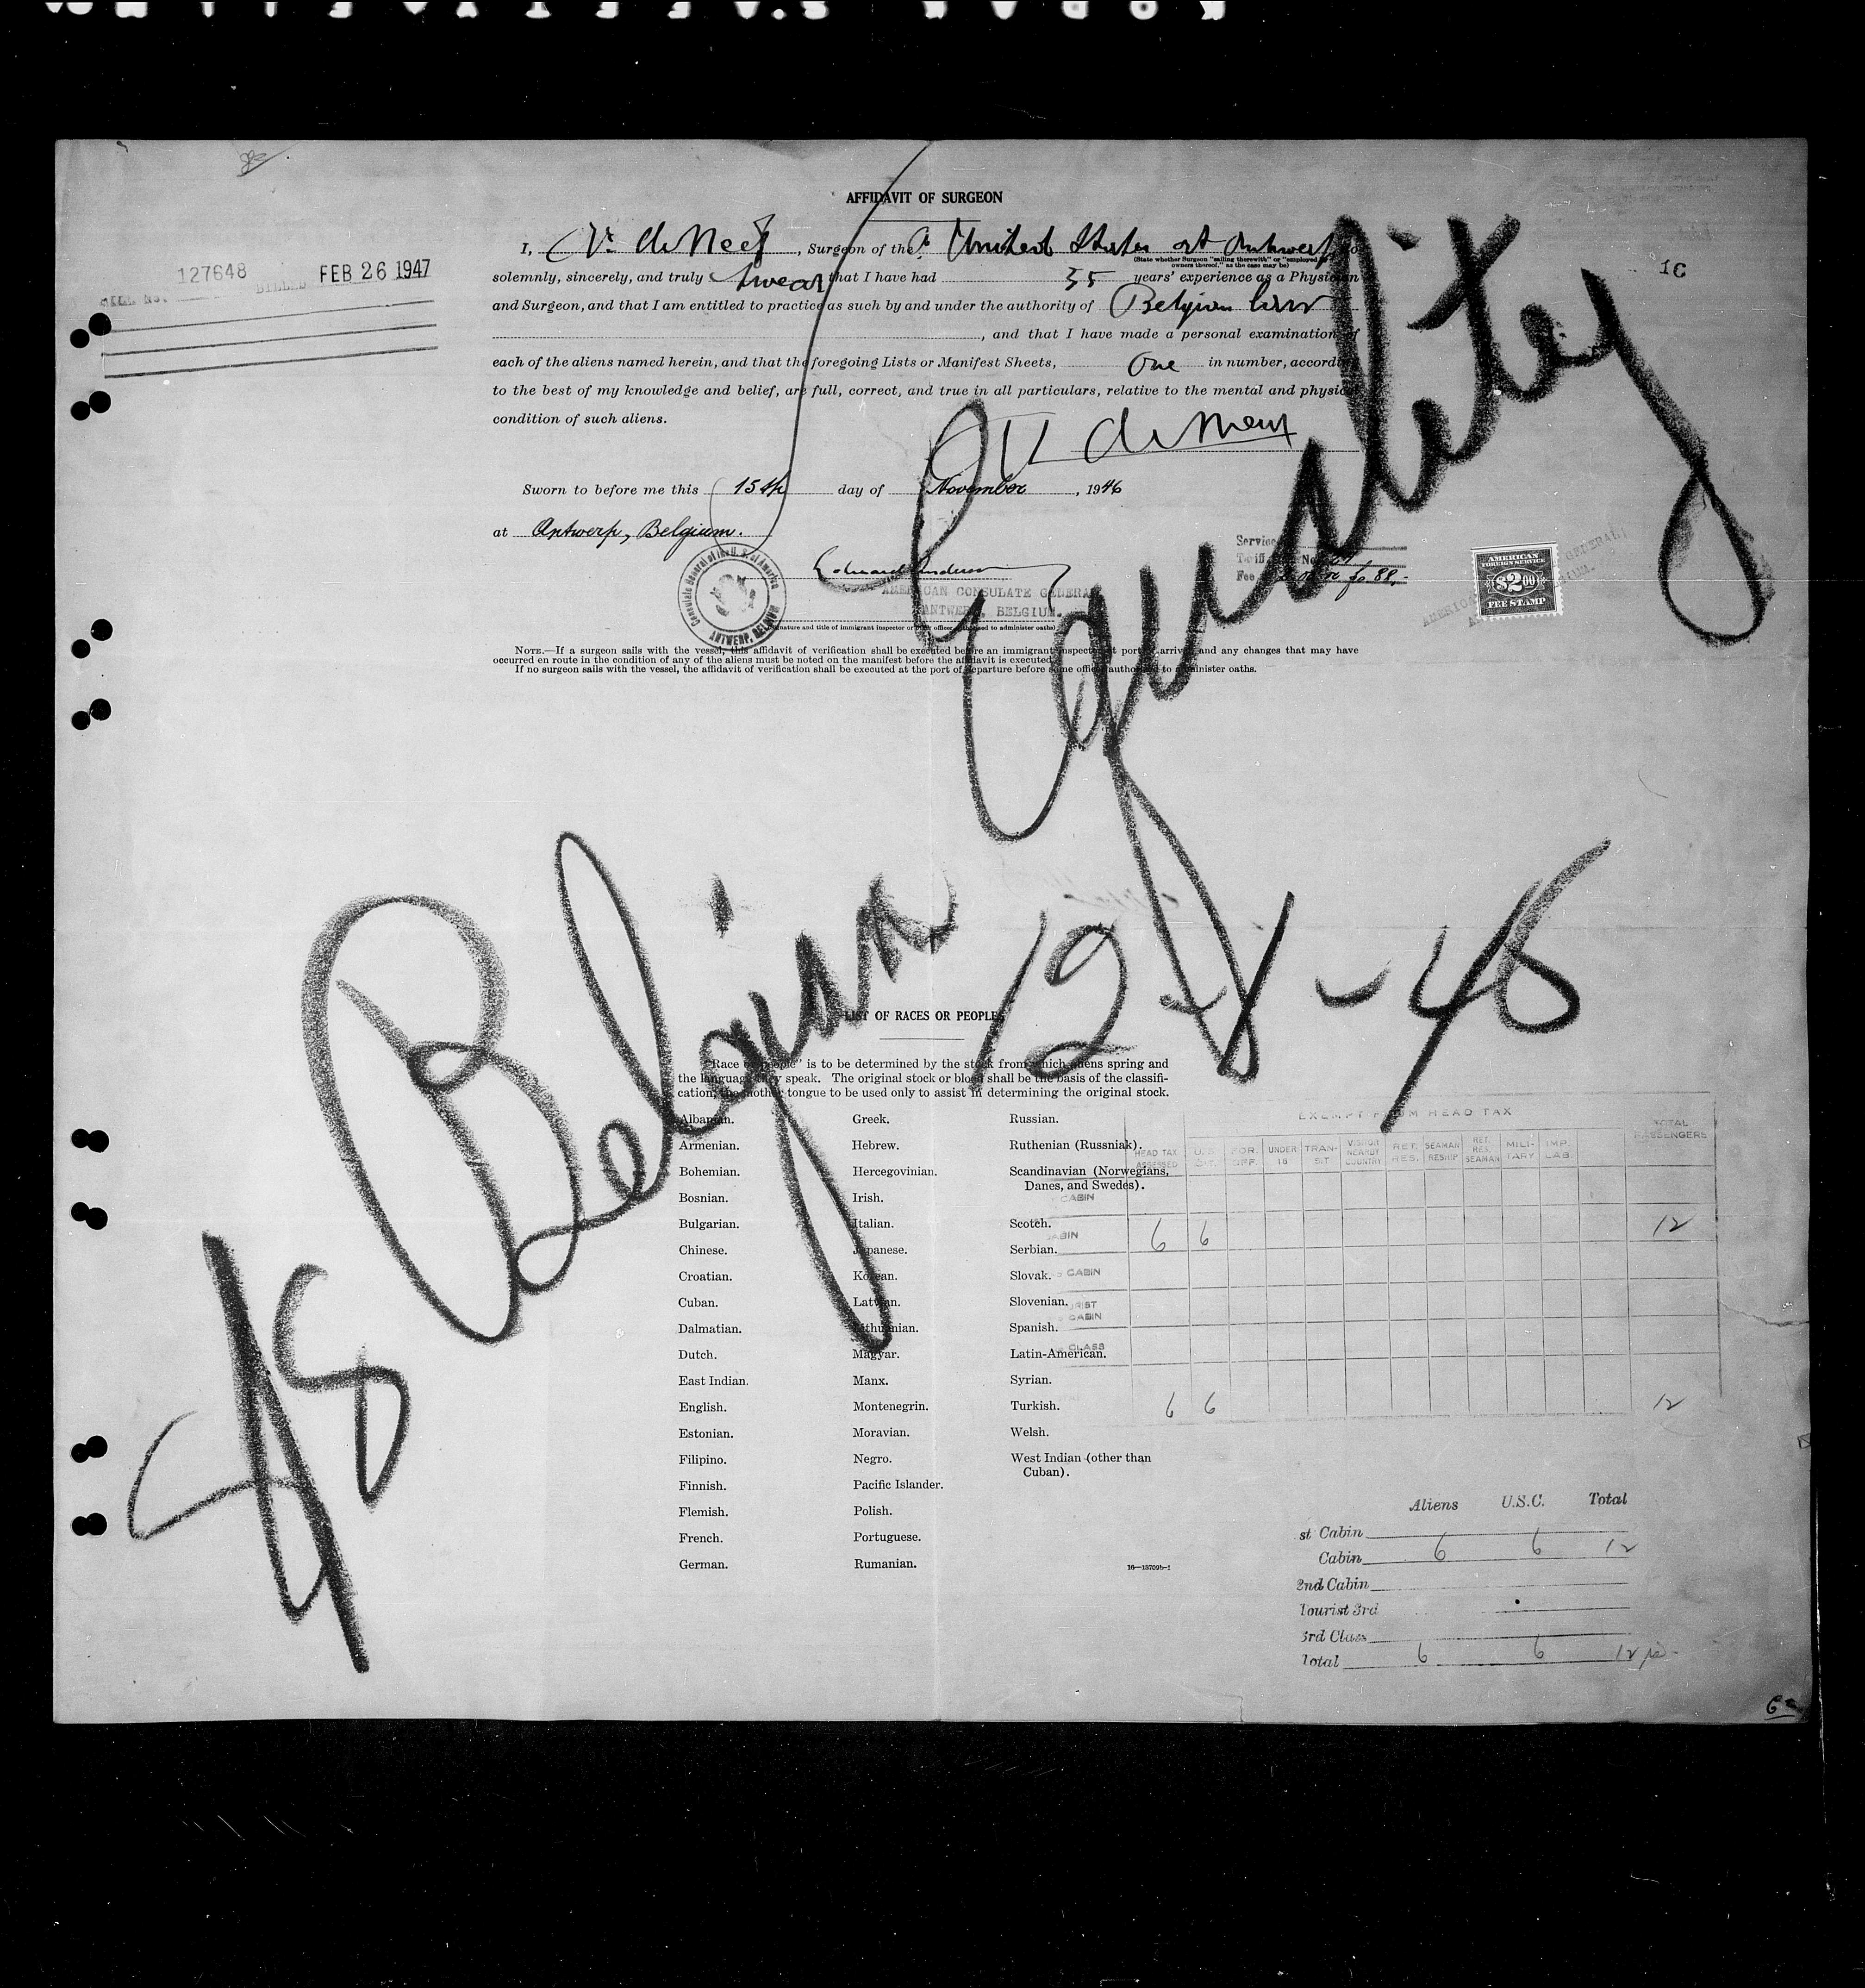 AFFIDAVIT OF SURGEON
I, V. de Neef, Surgeon of the United States at Antwerp, do
(State whether Surgeon "sailing therewith" or "employed by
owners thereof," as the case may be)
127648 FEB 26 1947
1C
solemnly, sincerely, and truly swear that I have had 35 years' experience as a Physician
and Surgeon, and that I am entitled to practice as such by and under the authority of Belgian law
, and that I have made a personal examination of
each of the aliens named herein, and that the foregoing Lists or Manifest Sheets, One in number, according
to the best of my knowledge and belief, are full, correct, and true in all particulars, relative to the mental and physical
condition of such aliens.
Sworn to before me this 15th day of November, 1946
at Antwerp, Belgium.
Consulate General of the U. S. of America
ANTWERP, BELGIUM
AMERICAN CONSULATE GENERAL
ANTWERP, BELGIUM.
(Signature and title of immigrant inspector or other officer authorized to administer oaths)
Service
Tariff No.
Fee
AMERICAN
FOREIGN SERVICE
$2.00
FEE STAMP
NOTE.—If a surgeon sails with the vessel, this affidavit of verification shall be executed before an immigrant inspector at port of arrival and any changes that may have
occurred en route in the condition of any of the aliens must be noted on the manifest before the affidavit is executed.
If no surgeon sails with the vessel, the affidavit of verification shall be executed at the port of departure before some officer authorized to administer oaths.
Equality
12-8-46
Belgian
48
LIST OF RACES OR PEOPLES
"Race or people" is to be determined by the stock from which aliens spring and
the language they speak. The original stock or blood shall be the basis of the classifi-
cation, the mother tongue to be used only to assist in determining the original stock.
Albanian.
Armenian.
Bohemian.
Bosnian.
Bulgarian.
Chinese.
Croatian.
Cuban.
Dalmatian.
Dutch.
East Indian.
English.
Estonian.
Filipino.
Finnish.
Flemish.
French.
German.
Greek.
Hebrew.
Hercegovinian.
Irish.
Italian.
Japanese.
Korean.
Latvian.
Lithuanian.
Magyar.
Manx.
Montenegrin.
Moravian.
Negro.
Pacific Islander.
Polish.
Portuguese.
Rumanian.
Russian.
Ruthenian (Russniak).
Scandinavian (Norwegians,
Danes, and Swedes).
Scotch.
Serbian.
Slovak.
Slovenian.
Spanish.
Latin-American.
Syrian.
Turkish.
Welsh.
West Indian (other than
Cuban).
16—18709b-1
EXEMPT FROM HEAD TAX
HEAD TAX ASSESSED U.S. CIT. FOR. OFF. UNDER 16 TRAN-SIT VISITOR NEARBY COUNTRY RET. RES. SEAMAN RESHIP RET. RES. SEAMAN MILI-TARY IMP. LAB. TOTAL PASSENGERS
CABIN
CABIN 6 6 12
CABIN
TOURIST
CABIN
CLASS
6 6 12
Aliens U.S.C. Total
st Cabin
Cabin 6 6 12
2nd Cabin
Tourist 3rd
3rd Class
Total 6 6 12